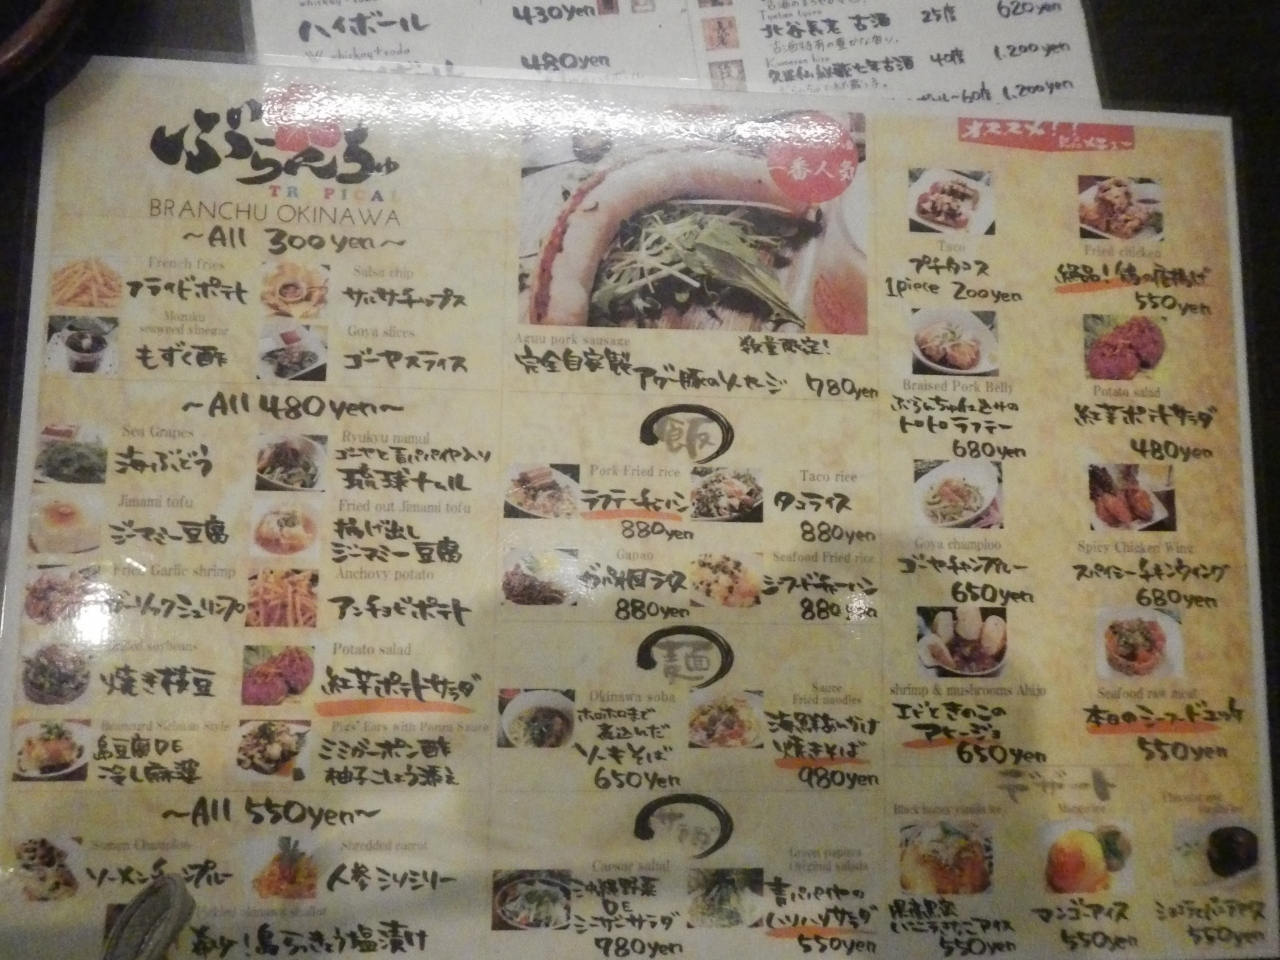 ハイボール
430yen
480yen
北谷長老 古酒 25度 620yen
Kumesen
久米仙 秘蔵七年古酒 40度 1,200yen
60度 1,200yen
ぶらんちゅ
TROPICAL
BRANCHU OKINAWA
~All 300yen~
French fries
フライドポテト
Salsa chip
サルサチップス
Mozuku
seaweed vinegar
もずく酢
Goya slices
ゴーヤスライス
~All 480yen~
Sea Grapes
海ぶどう
Ryukyu namul
ゴーヤと青パパイヤ入り
琉球ナムル
Jimami tofu
ジーマミー豆腐
Fried out Jimami tofu
揚げ出し
ジーマミー豆腐
Fried Garlic shrimp
ガーリックシュリンプ
Anchovy potato
アンチョビポテト
soybeans
焼き枝豆
Potato salad
紅芋ポテトサラダ
Sichuan Style
島豆腐DE
冷し麻婆
Pigs' Ears with Ponzu Sauce
ミミガーポン酢
柚子こしょう添え
~All 550yen~
Somen Champloo
ソーメンチャンプルー
Shredded carrot
人参シリシリー
okinawa shallot
島らっきょう塩漬け
一番人気
Aguu pork sausage
数量限定!
完全自家製アグー豚のソーセージ 780yen
飯
Pork Fried rice
ラフテーチャーハン
880yen
Taco rice
タコライス
880yen
Gapao
880yen
Seafood Fried rice
シーフードチャーハン
880yen
麺
Okinawa soba
ホロホロまで
煮込んだ
ソーキそば
650yen
Sauce
Fried noodles
海鮮あんかけ
焼きそば
980yen
サラダ
Caesar salad
沖縄野菜
DE
シーザーサラダ
780yen
Green papaya
Original salada
青パパイヤの
ハリハリサラダ
550yen
オススメ!!
Taco
プチタコス
1piece 200yen
Fried chicken
絶品!鶏の唐揚げ
550yen
Braised Pork Belly
ぶらんちゅ仕込みの
トロトロラフテー
680yen
Potato salad
紅芋ポテトサラダ
480yen
Goya champloo
ゴーヤチャンプルー
650yen
Spicy Chicken Wing
スパイシーチキンウイング
680yen
shrimp & mushrooms Ahijo
エビときのこの
アヒージョ
650yen
Seafood raw meat
本日のシーフードユッケ
550yen
デザート
黒糖黒蜜
550yen
Mango ice
マンゴーアイス
550yen
550yen